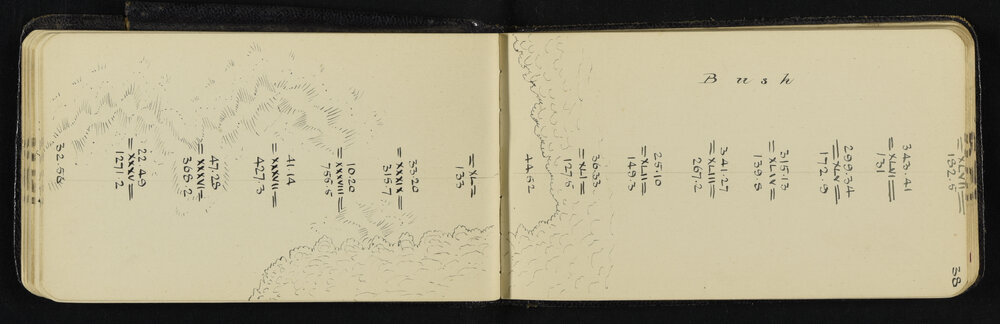 38
=XLVII=
182.5
343.41
=XLVI=
731
299.34
=XLV=
172.9
315.13
=XLIV=
139.8
Bush
341.27
=XLIII=
267.2
25.10
=XLII=
149.3
36.33
=XLI=
127.5
44.52
=XL=
133
33.20
=XXXIX=
315.7
10.20
=XXXVIII=
755.5
41.14
=XXXVII=
427.3
47.28
=XXXVI=
368.2
22.49
=XXXV=
1271.2
32.58